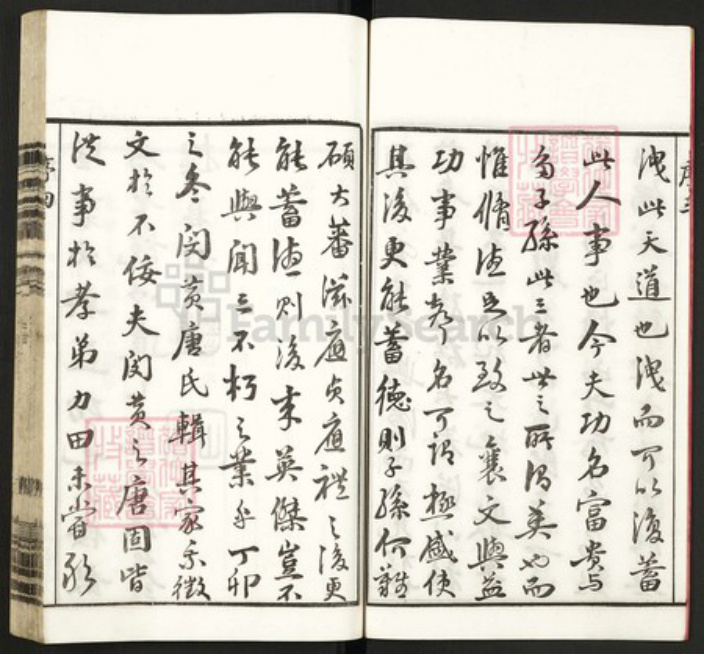 洩此天道也洩而可以復蓄
此人事也今夫功名富貴与
多子孫此三者世之所謂美也而
惟脩德足以致之襄文與益
功事業声名可謂極盛使
其後更能蓄德則子孫何難
碩大蕃滋應貞應禮之後更
能蓄德則後来英傑豈不
能與聞三不朽之業乎丁卯
之冬閔黄唐氏輯其家乘徵
文於不佞夫閔黄之唐固皆
從事於孝弟力田未嘗形
序四
FamilySearch